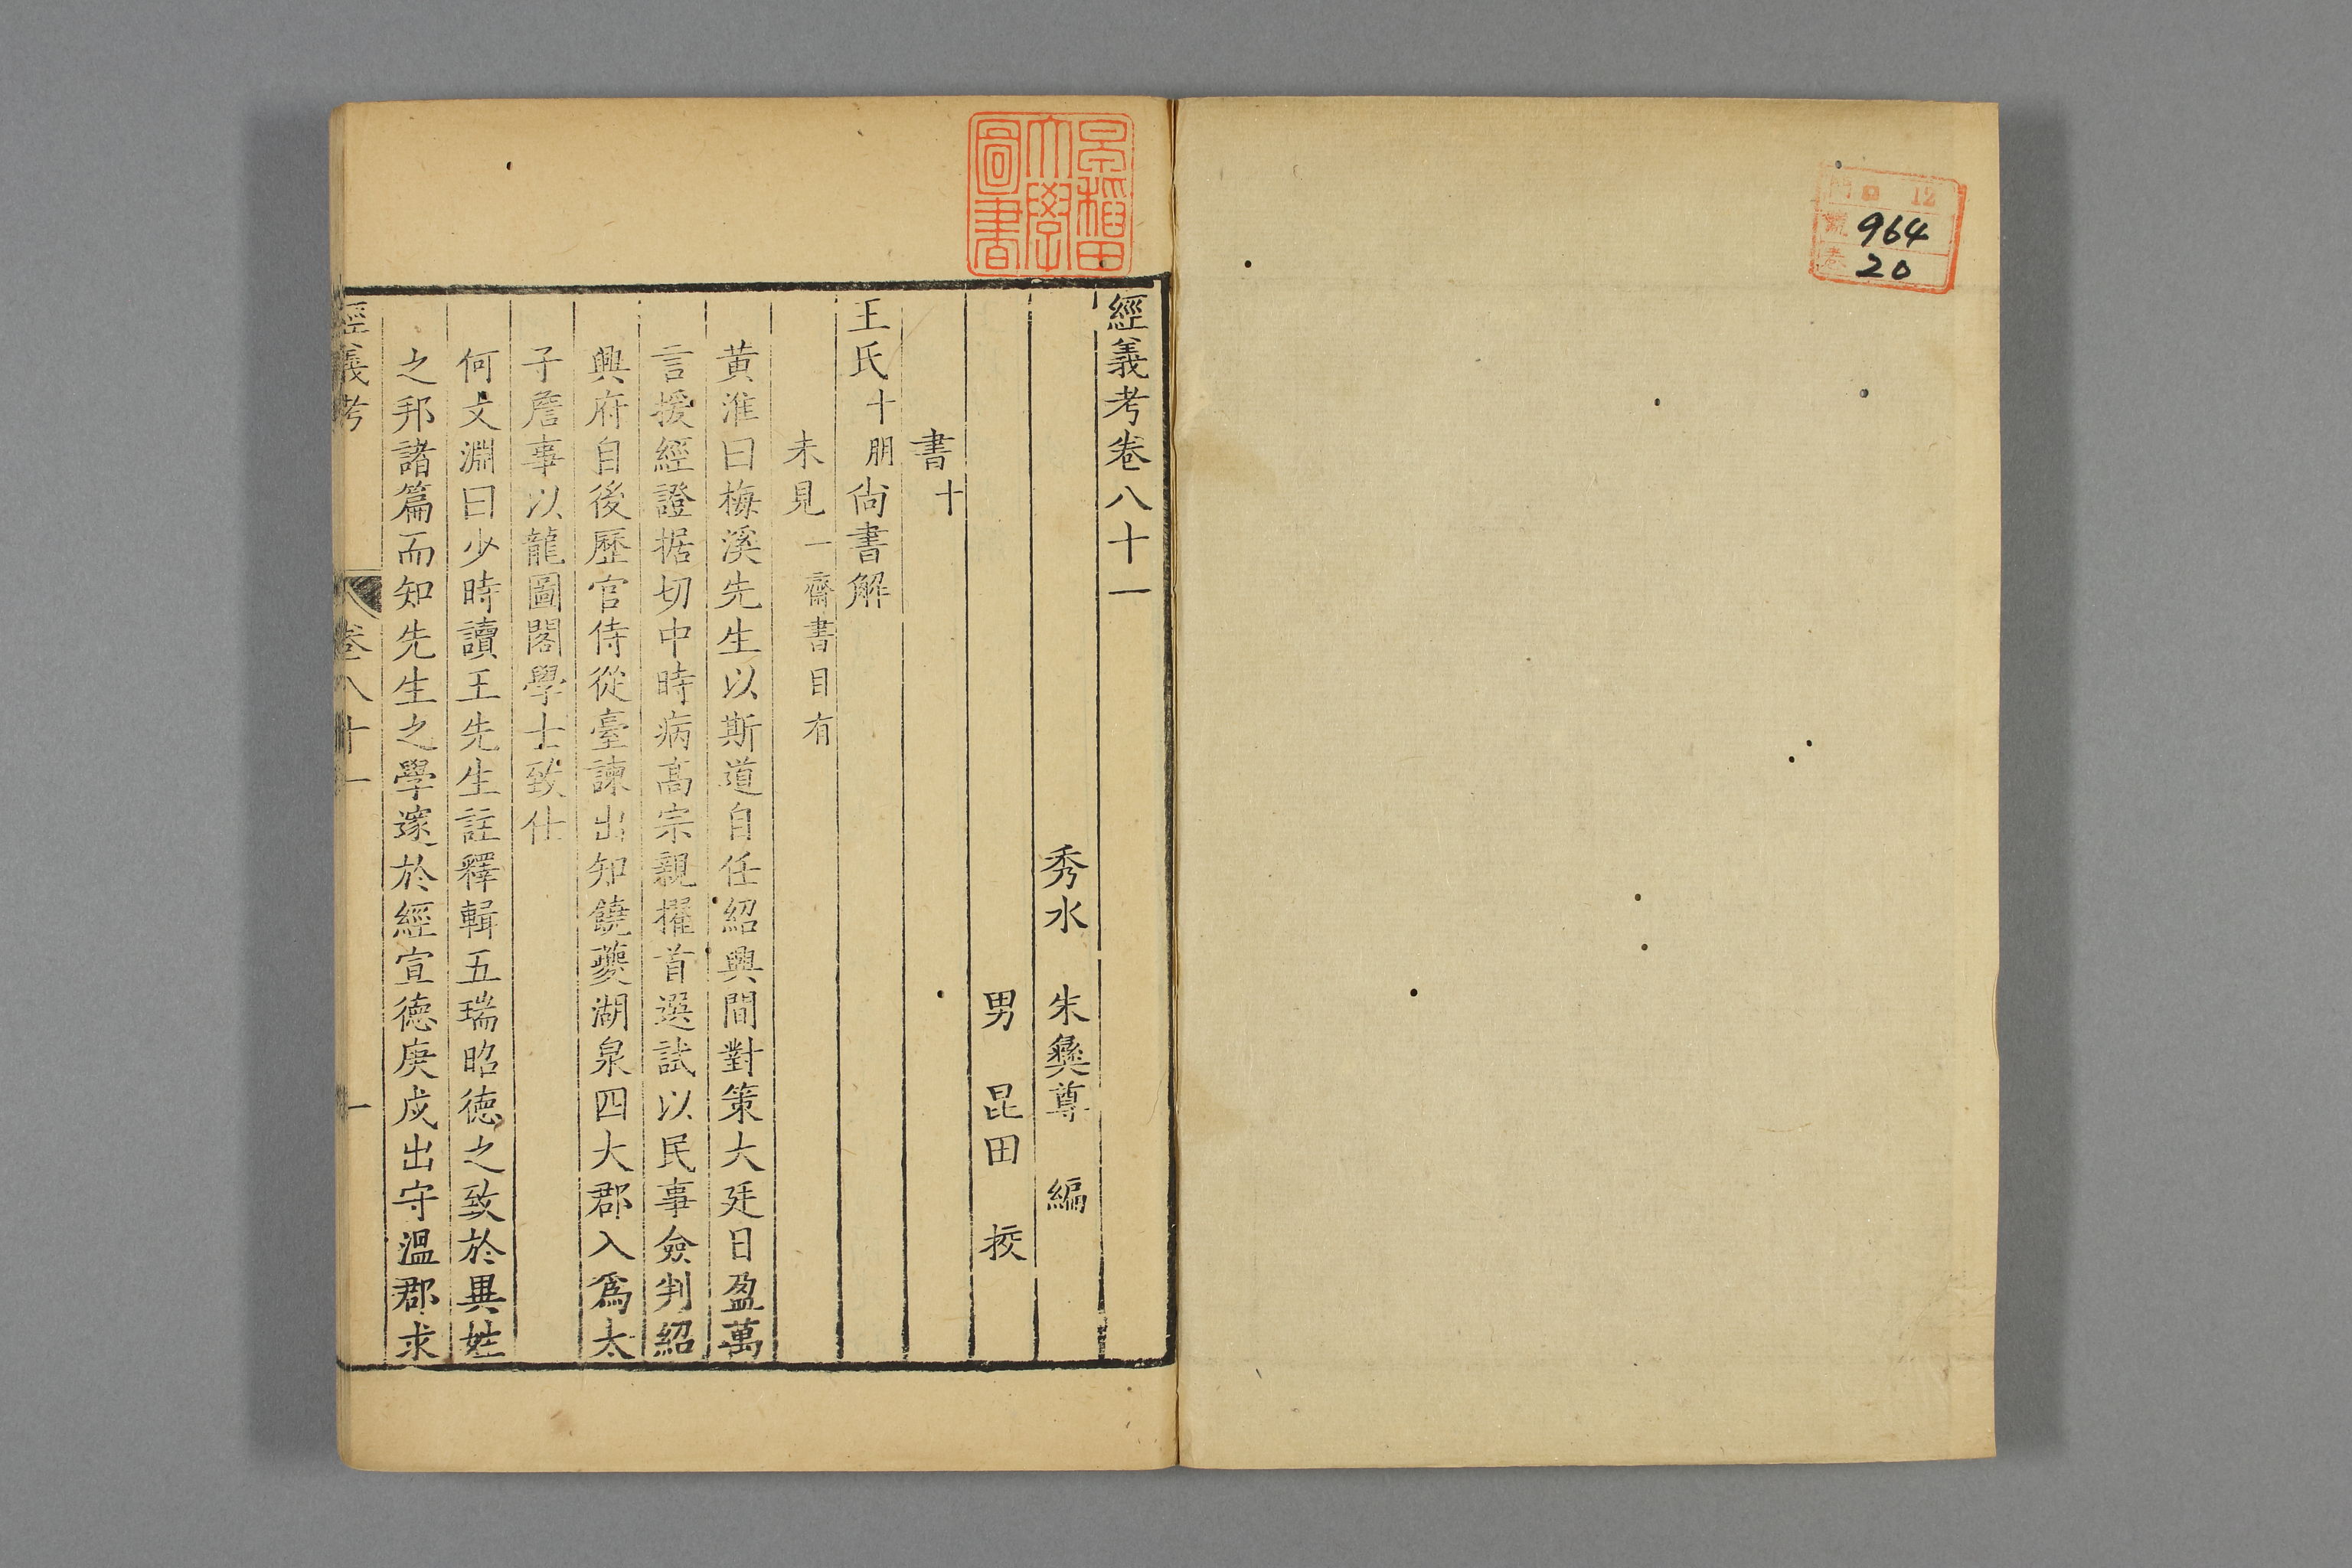 門 ロ 12
號 964
卷 20
早稻田大學圖書
經義考卷八十一
秀水 朱彝尊 編
男 昆田 挍
書十
王氏十朋尙書解
未見一齋書目有
黄淮曰梅溪先生以斯道自任紹興間對策大廷日盈萬
言援經證据切中時病髙宗親擢首選試以民事僉判紹
興府自後歷官侍從臺諫出知饒夔湖泉四大郡入爲太
子詹事以龍圖閣學士致仕
何文淵曰少時讀王先生註釋輯五瑞昭德之致於異姓
之邦諸篇而知先生之學邃於經宣德庚戌出守溫郡求
經義考 卷八十一 一